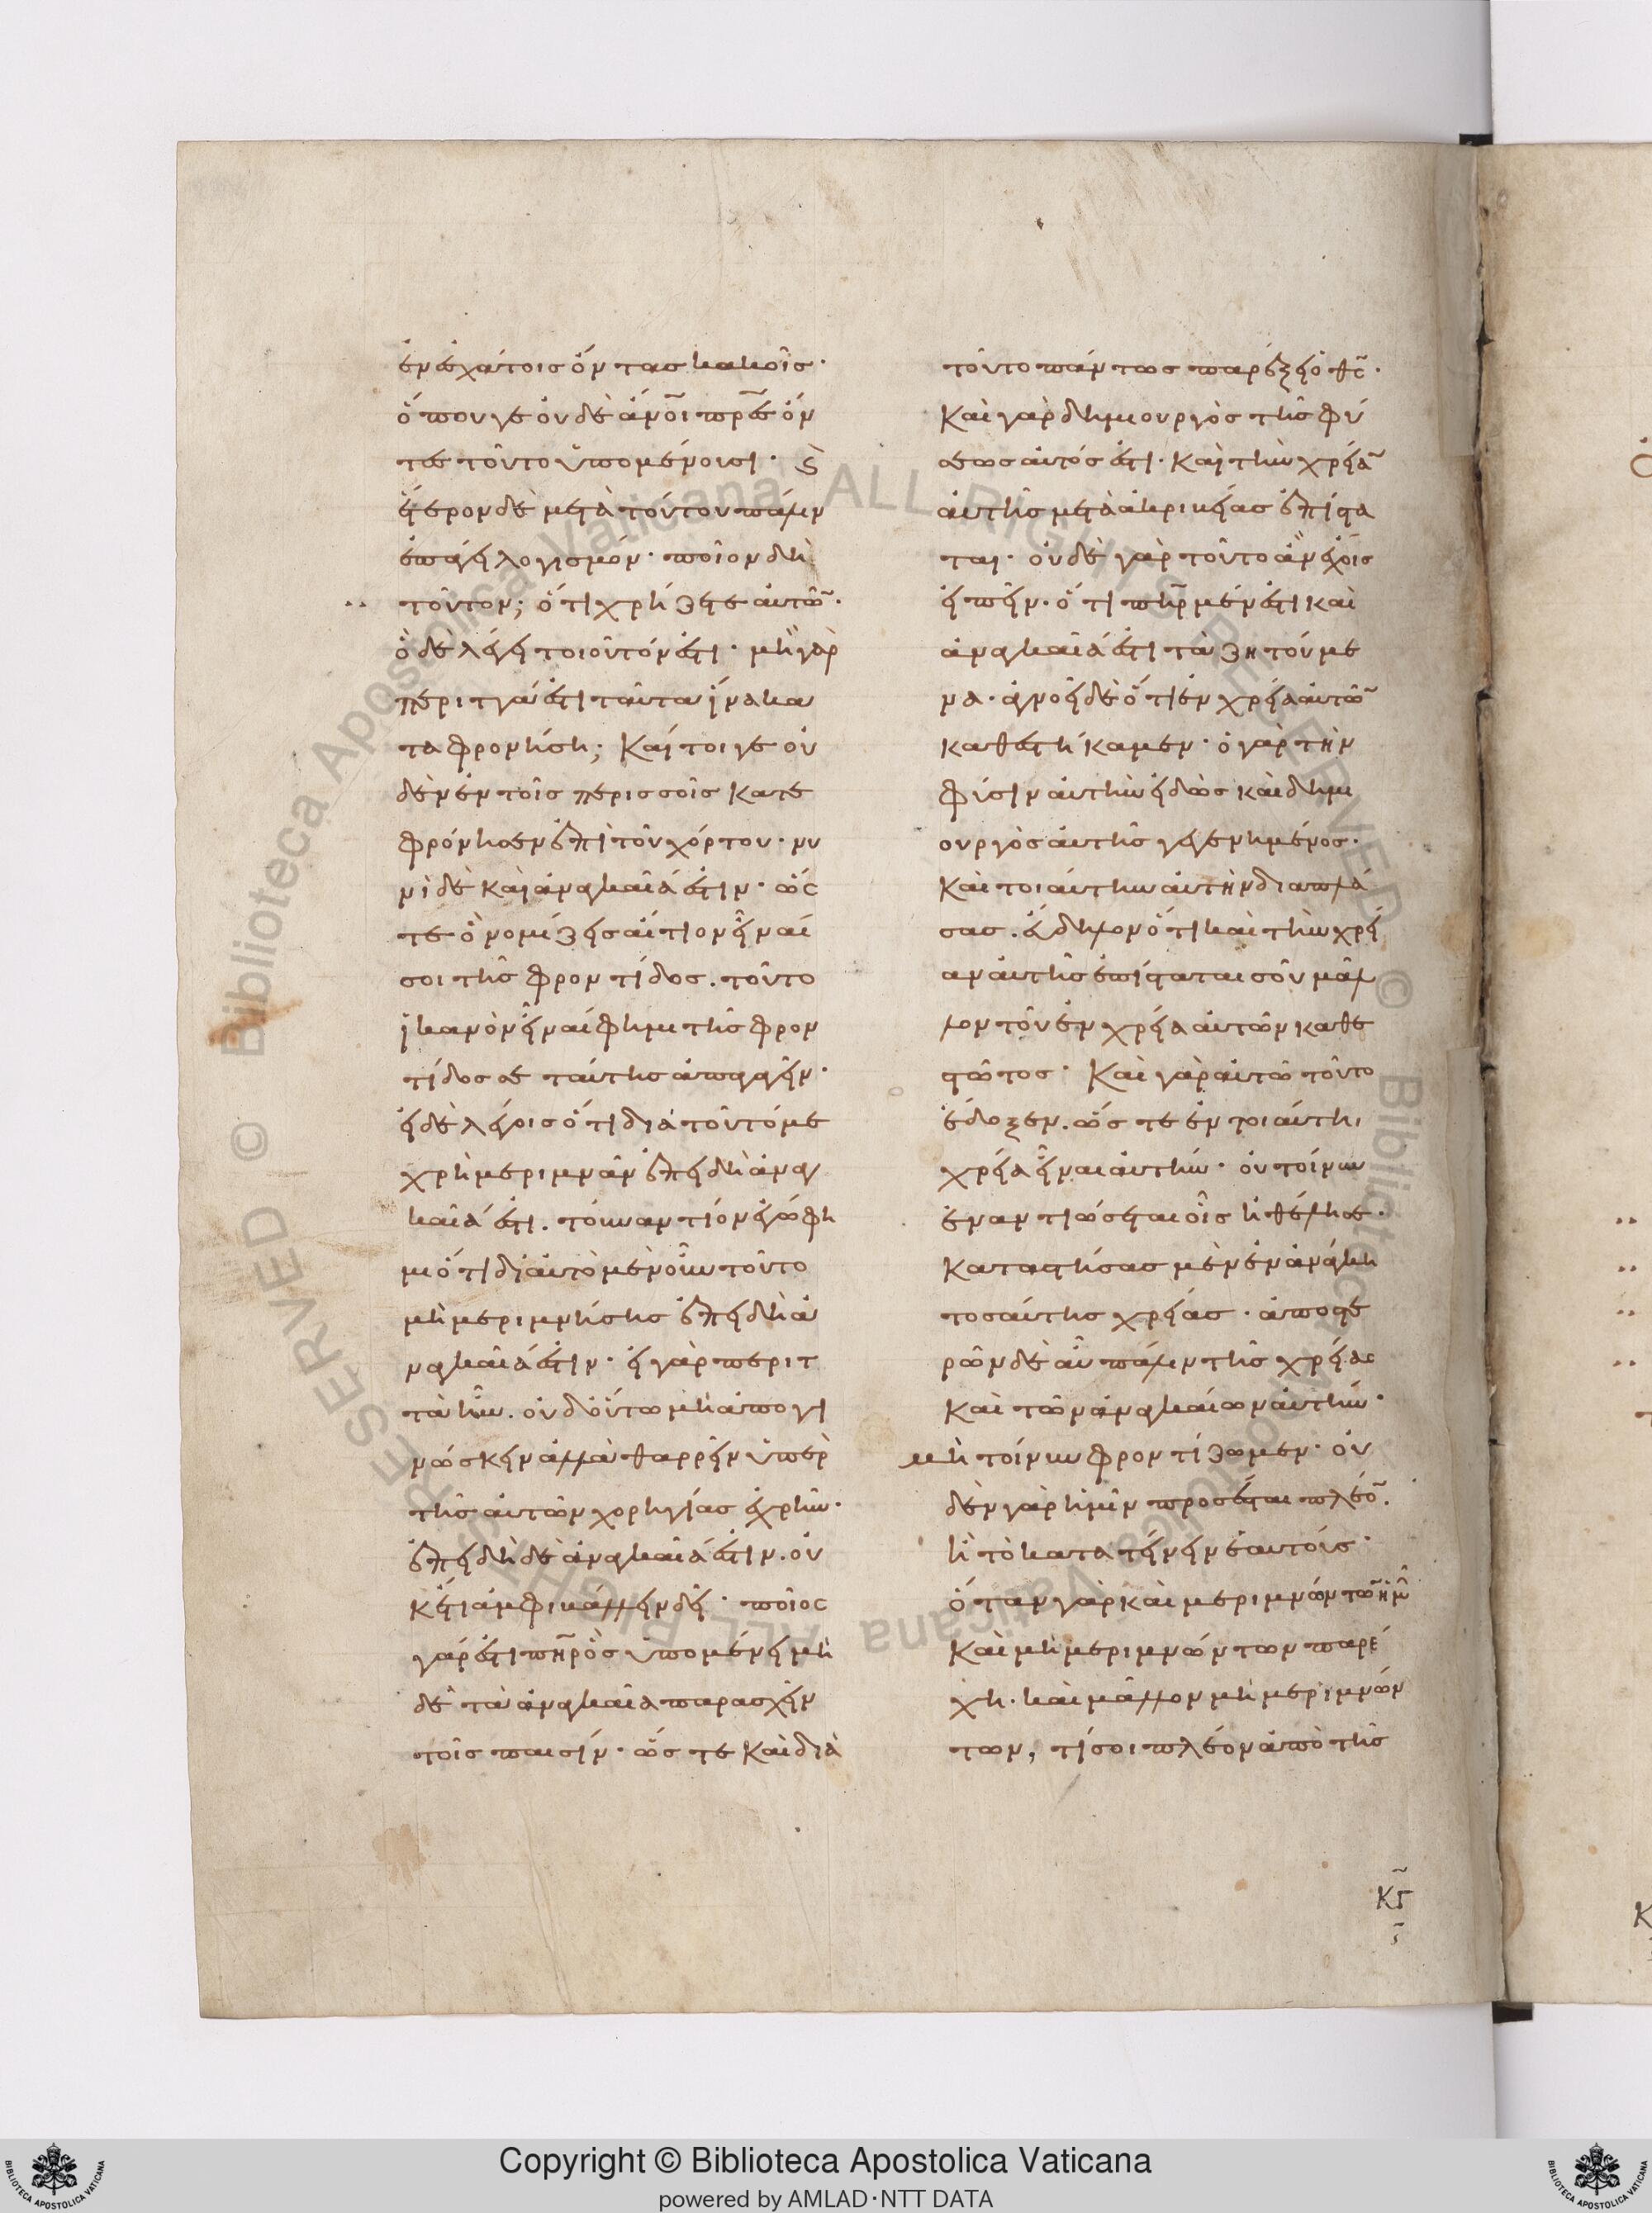 ἐν ἐσχάτοις ὄντας κακοῖς·
ὅπουγε οὐδὲ ἄνοι πρες ὄν
τες τοῦτο ὑπομένουσι· ϛ
ἕτερον δὲ μετὰ τούτου πάλιν
ἐπάγει λογισμόν· ποῖον δὴ
τοῦτον; ὅτι χρήζετε αὐτῶ·
ὃ δὲ λέγει τοιοῦτόν ἐστι· μὴ γὰρ
περιττά ἐστι ταῦτα ἵνα κα
ταφρονήσῃ; Καίτοιγε οὐ
δὲν ἐν τοῖς περισσοῖς κατε
φρόνησεν ἐπὶ τοῦ χόρτου· νυ
νὶ δὲ καὶ ἀναγκαῖά ἐστιν· ὥς
τε ὃ νομίζεις αἴτιον εἶναί
σοι τῆς φροντίδος. τοῦτο
ἱκανὸν εἶναί φημι τῆς φρον
τίδος σε ταύτης ἀπαγαγεῖν·
εἰ δὲ λέγοις ὅτι διὰ τοῦτό με
χρὴ μεριμνᾶν ἐπειδὴ ἀναγ
καῖά ἐστι. τουναντίον ἐγώ φη
μι ὅτι δι αὐτὸ μὲν οὖν τοῦτο
μὴ μεριμνήσης ἐπειδὴ ἀ
ναγκαῖά ἐστιν· εἰ γὰρ περιτ
τὰ ἦν. οὐδ οὕτω μὴ ἀπογι
νώσκειν ἀλλὰ θαρρεῖν ὑπὲρ
τῆς αὐτῶν χορηγίας ἐχρῆν·
ἐπειδὴ δὲ ἀναγκαῖά ἐστιν. οὐ
κέτι ἀμφιβάλλειν δεῖ· ποῖος
γάρ ἐστι πηρ ὃς ὑπομένει μη
δὲ τὰ ἀναγκαῖα παρασχεῖν
τοῖς παισίν· ὥστε καὶ διὰ
τοῦτο πάντως παρέξει ὁ θς·
Καὶ γὰρ δημιουργὸς τῆς φύ
σεως αὐτός ἐστι· Καὶ τὴν χρεία
αὐτῆς μετὰ ἀκριβείας ἐπίστα
ται· οὐδὲ γὰρ τοῦτο ἂν ἔχοις
εἰπεῖν· ὅτι πηρ μέν ἐστι καὶ
ἀναγκαῖά ἐστι τὰ ζητούμε
να· ἀγνοεῖ δὲ ὅτι ἐν χρεία αὐτῶ
καθεστήκαμεν· ὁ γὰρ τὴν
φύσιν αὐτὴν εἰδὼς καὶ δημι
ουργὸς αὐτῆς γεγενημένος·
Καὶ τοιαύτην αὐτὴν διαπλά
σας. εὔδηλον ὅτι καὶ τὴν χρεί
αν αὐτῆς ἐπίσταται σοῦ μᾶλ
λον τοῦ ἐν χρεία αὐτῶν καθε
στῶτος· Καὶ γὰρ αὐτῶ τοῦτο
ἔδοξεν. ὥστε ἐν τοιαύτηι
χρεία εἶναι αὐτήν· οὐ τοίνυν
ἐναντιώσεται οἷς ἠθέλησε·
Καταστήσας μὲν ἐν ἀνάγκη
τοσαύτης χρείας· ἀποστε
ρῶν δὲ αὖ πάλιν τῆς χρείας
Καὶ τῶν ἀναγκαίων αὐτήν·
μὴ τοίνυν φροντίζωμεν· οὐ
δὲν γὰρ ἡμῖν προσέσται πλέο.
ἢ τὸ κατατείνειν ἑαυτούς·
ὅταν γὰρ καὶ μεριμνώντω ἡμ
Καὶ μὴ μεριμνώντων παρέ
χη· καὶ μᾶλλον μὴ μεριμνών
των, τί σοι πλέον ἀπὸ τῆς
Κς